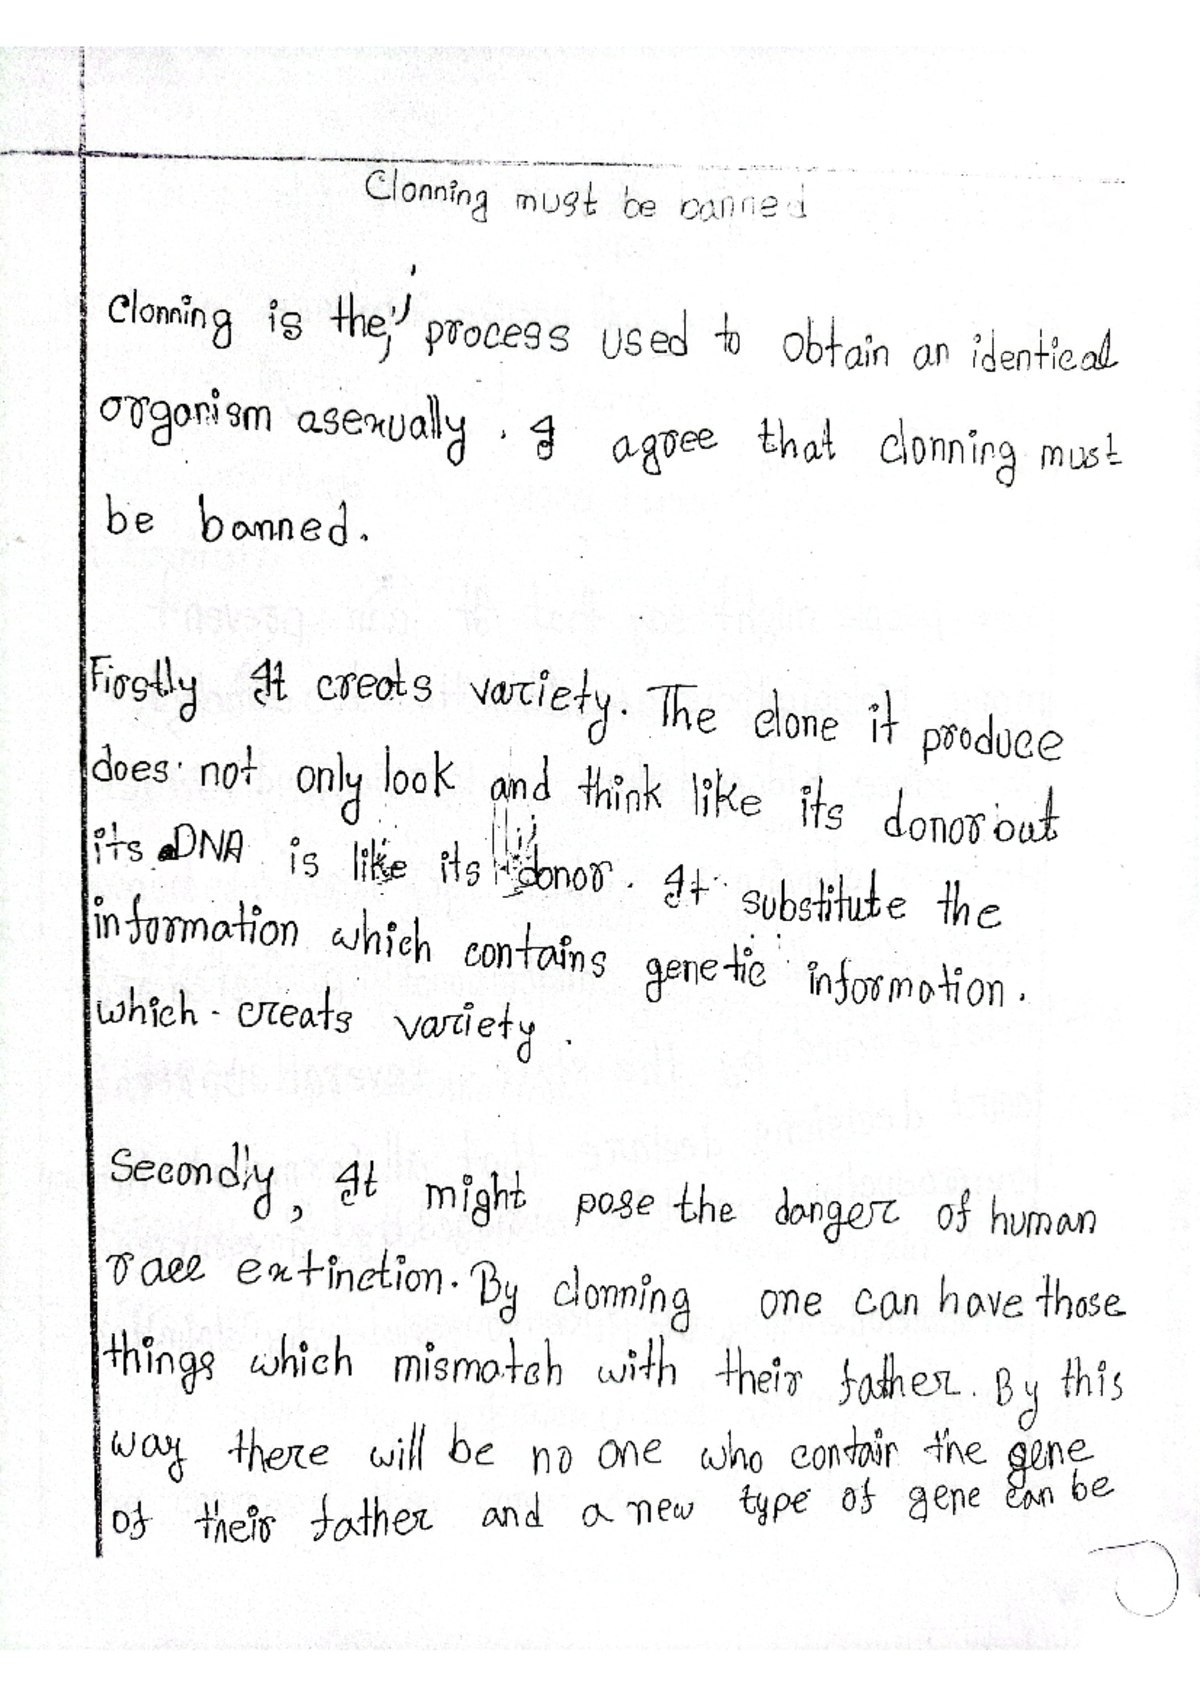 Clonning must be banned
Clonning is the, process used to obtain an identical
organism asexually. I agree that clonning must
be banned.
Firstly It creats variety. The clone it produce
does not only look and think like its donor but
its DNA is like its donor. It substitute the
information which contains genetic information.
which creats variety.
Secondly, It might pose the danger of human
race extinction. By clonning one can have those
things which mismatch with their father. By this
way there will be no one who contain the gene
of their father and a new type of gene can be